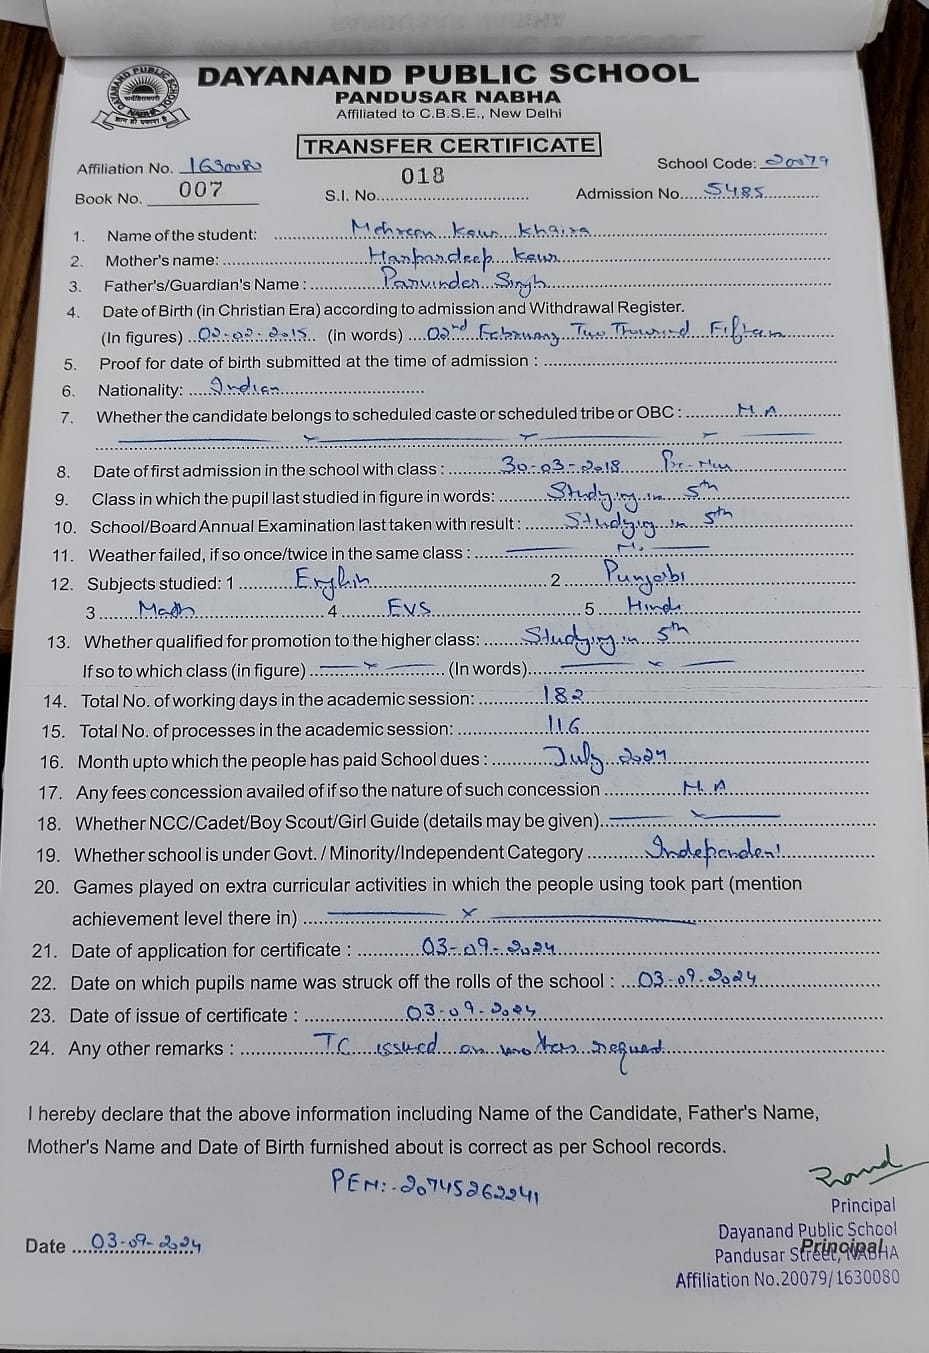 DAYANAND PUBLIC SCHOOL
PANDUSAR NABHA
Affiliated to C.B.S.E., New Delhi
TRANSFER CERTIFICATE
Affiliation No. 1630080 School Code: 20079
Book No. 007 S.I. No. 018 Admission No. 5485
1. Name of the student: Mehreen Kaur Khaira
2. Mother's name: Kaur
3. Father's/Guardian's Name : Parvinder Singh
4. Date of Birth (in Christian Era) according to admission and Withdrawal Register.
(In figures) 02-02-2015 (in words) 02nd February Two Thousand Fifteen
5. Proof for date of birth submitted at the time of admission :
6. Nationality: Indian
7. Whether the candidate belongs to scheduled caste or scheduled tribe or OBC : N.A
8. Date of first admission in the school with class : 30-03-2018
9. Class in which the pupil last studied in figure in words: Studying in 5th
10. School/Board Annual Examination last taken with result : Studying in 5th
11. Weather failed, if so once/twice in the same class :
12. Subjects studied: 1 English 2 Punjabi
3 Math 4 EVS 5 Hindi
13. Whether qualified for promotion to the higher class: Studying in 5th
If so to which class (in figure) (In words)
14. Total No. of working days in the academic session: 182
15. Total No. of processes in the academic session: 116
16. Month upto which the people has paid School dues : July 2024
17. Any fees concession availed of if so the nature of such concession N.A
18. Whether NCC/Cadet/Boy Scout/Girl Guide (details may be given)
19. Whether school is under Govt. / Minority/Independent Category Independent
20. Games played on extra curricular activities in which the people using took part (mention
achievement level there in) x
21. Date of application for certificate : 03-09-2024
22. Date on which pupils name was struck off the rolls of the school : 03-09-2024
23. Date of issue of certificate : 03-09-2024
24. Any other remarks : TC issued on mother request
I hereby declare that the above information including Name of the Candidate, Father's Name,
Mother's Name and Date of Birth furnished about is correct as per School records.
PEN:-20745262241
Principal
Dayanand Public School
Date 03-09-2024 Principal
Pandusar Street, NABHA
Affiliation No.20079/1630080